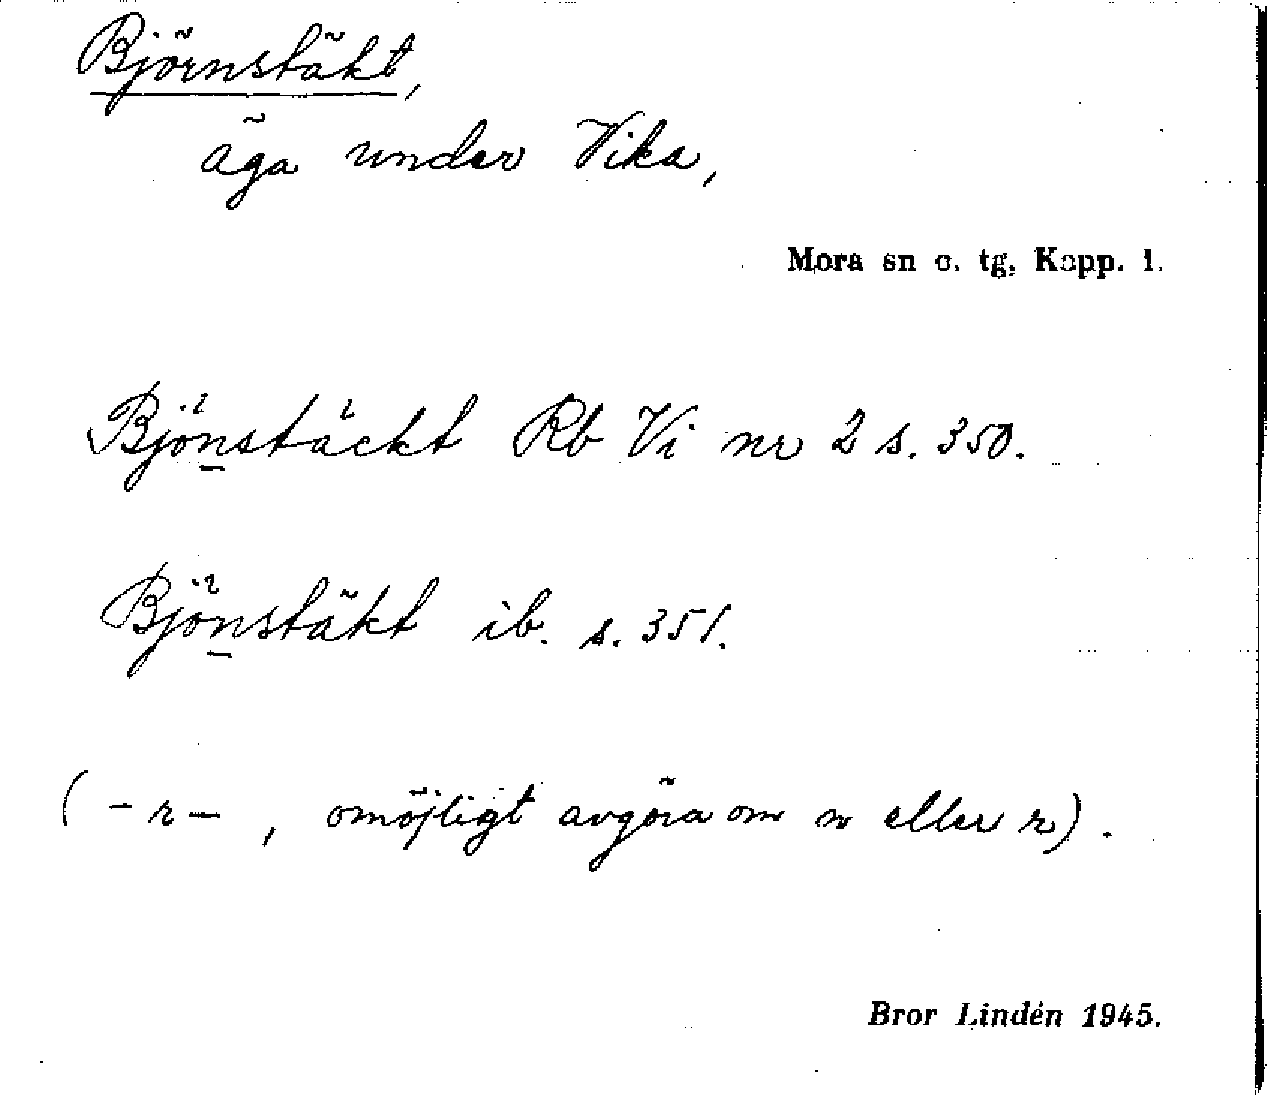 Björnstäkt,
äga under Vika,
Mora sn o. tg, Kopp. l.
Björnstäckt Rb Vi nr 2 s. 350.
Björnstäkt ib. s. 351.
(-r-, omöjligt avgöra om n eller r).
Bror Lindén 1945.